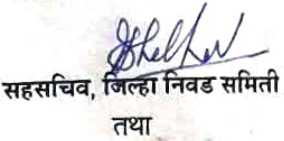 सहसचिव, जिल्हा निवड समिती
तथा